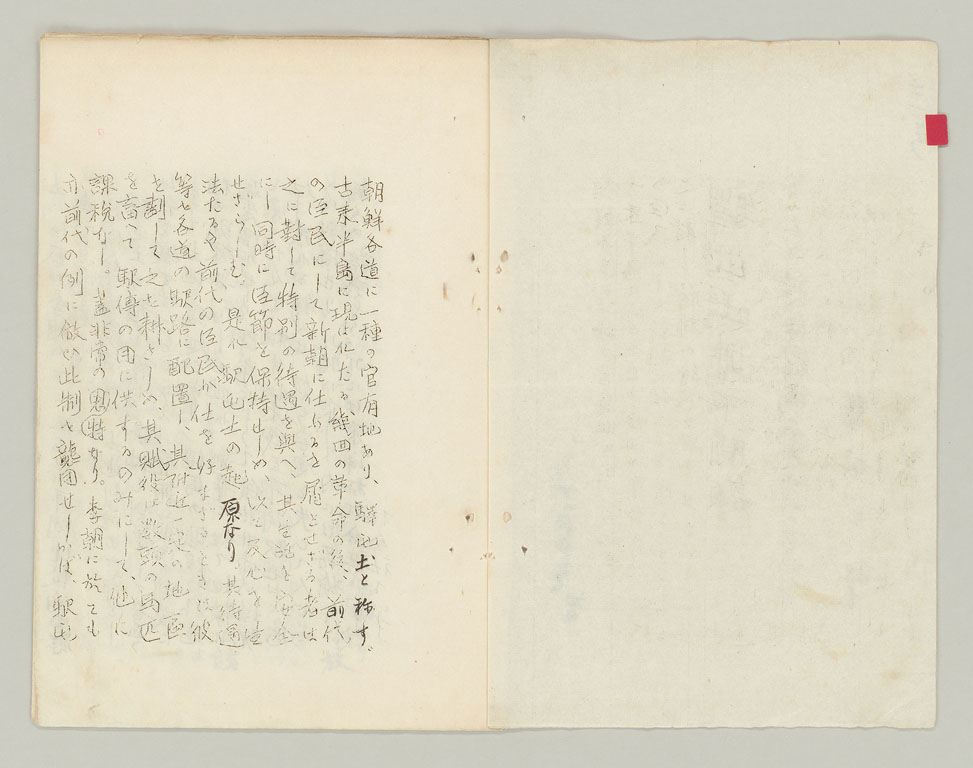 朝鮮各道に一種の官有地あり、驛屯土と称す。
古来半島に現はれたる幾回の革命の後、前代
の臣民にして新朝に仕ふるを屑とせざる者は
之に對して特別の待遇を與へ、其生活を安全
にし同時に臣節を保持せしめ、以て反心を
せざらしむ。是れ駅屯土の起原なり。其待遇
法たるや前代の臣民が仕を好まざるときは彼
等を各道の駅路に配置し、其附近一定の地区
を劃して之を耕さしめ、其賦役は数頭の馬匹
を畜へて駅傳の用に供するのみにして、他に
課税なし。蓋非常の恩特なり。李朝に於ても
亦前代の例に倣ひ此制を襲用せしかば、駅屯